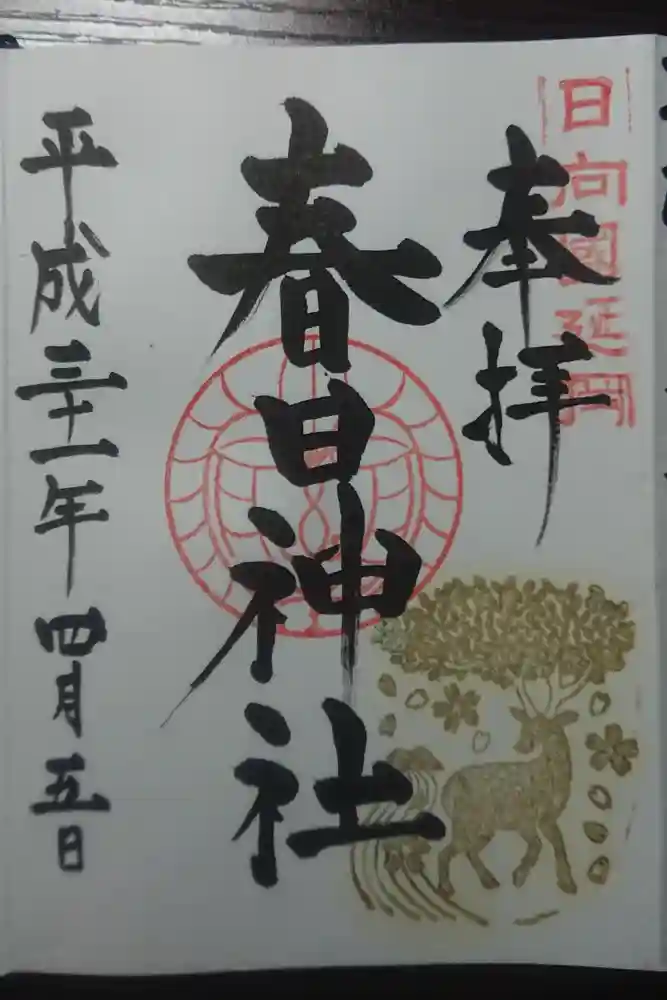 日向國延岡
奉拝
春日神社
平成三十一年四月五日